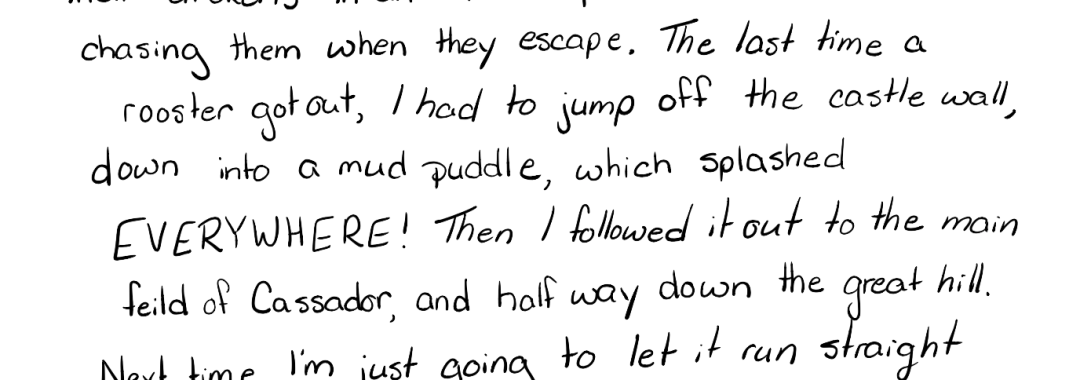 chasing them when they escape. The last time a
rooster got out, I had to jump off the castle wall,
down into a mud puddle, which splashed
EVERYWHERE! Then I followed it out to the main
feild of Cassador, and half way down the great hill.
Next time I'm just going to let it run straight